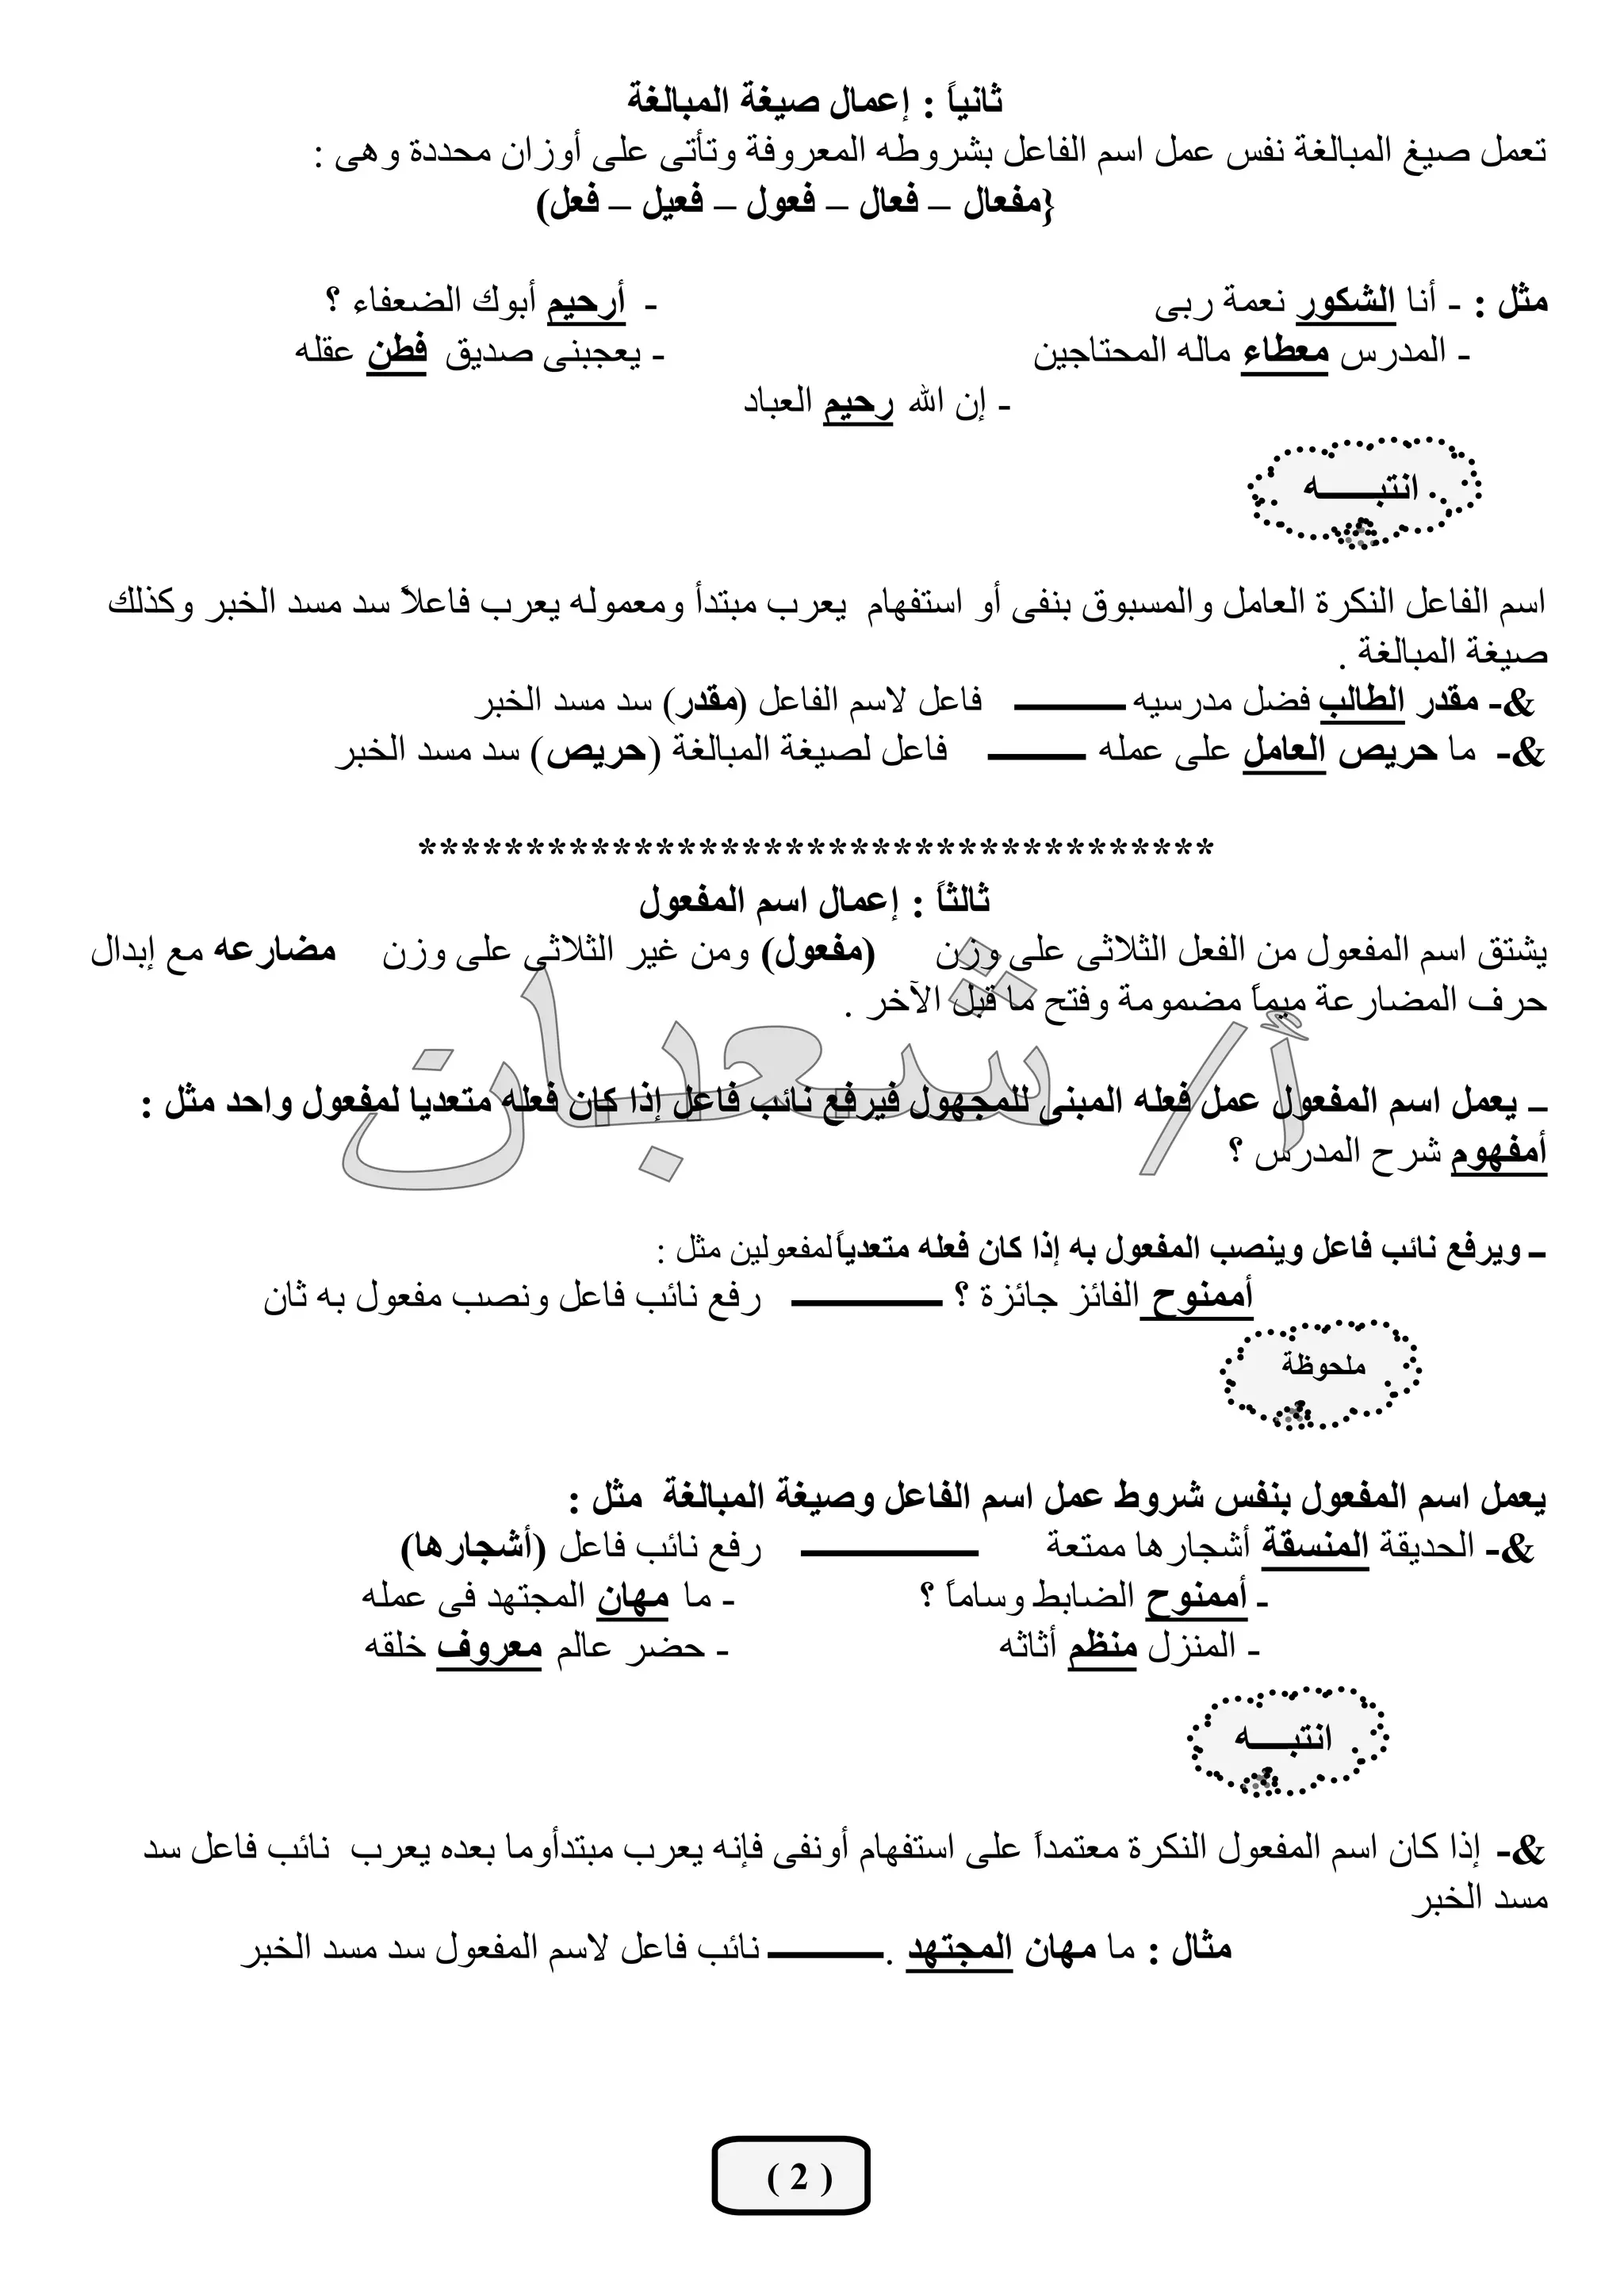 ثانياً : إعمال صيغة المبالغة
تعمل صيغ المبالغة نفس عمل اسم الفاعل بشروطه المعروفة وتأتى على أوزان محددة وهى :
{مفعال – فعال – فعول – فعيل – فعل)
مثل : - أنا الشكور نعمة ربى - أرحيم أبوك الضعفاء ؟
- المدرس معطاء ماله المحتاجين - يعجبنى صديق فطن عقله
- إن الله رحيم العباد
انتبـــــه
اسم الفاعل النكرة العامل والمسبوق بنفى أو استفهام يعرب مبتدأ ومعموله يعرب فاعلاً سد مسد الخبر وكذلك
صيغة المبالغة .
&- مقدر الطالب فضل مدرسيه ــــــــــ فاعل لاسم الفاعل (مقدر) سد مسد الخبر
&- ما حريص العامل على عمله ــــــــــ فاعل لصيغة المبالغة (حريص) سد مسد الخبر
*************************************
ثالثاً : إعمال اسم المفعول
يشتق اسم المفعول من الفعل الثلاثى على وزن (مفعول) ومن غير الثلاثى على وزن مضارعه مع إبدال
حرف المضارعة ميماً مضمومة وفتح ما قبل الآخر .
أ/ شعبان
ــ يعمل اسم المفعول عمل فعله المبنى للمجهول فيرفع نائب فاعل إذا كان فعله متعديا لمفعول واحد مثل :
أمفهوم شرح المدرس ؟
ــ ويرفع نائب فاعل وينصب المفعول به إذا كان فعله متعدياً لمفعولين مثل :
أممنوح الفائز جائزة ؟ ــــــــــــ رفع نائب فاعل ونصب مفعول به ثان
ملحوظة
يعمل اسم المفعول بنفس شروط عمل اسم الفاعل وصيغة المبالغة مثل :
&- الحديقة المنسقة أشجارها ممتعة ــــــــــــــ رفع نائب فاعل (أشجارها)
- أممنوح الضابط وساماً ؟ - ما مهان المجتهد فى عمله
- المنزل منظم أثاثه - حضر عالم معروف خلقه
انتبــــه
&- إذا كان اسم المفعول النكرة معتمداً على استفهام أونفى فإنه يعرب مبتدأوما بعده يعرب نائب فاعل سد
مسد الخبر
مثال : ما مهان المجتهد .ــــــــــ نائب فاعل لاسم المفعول سد مسد الخبر
( 2 )